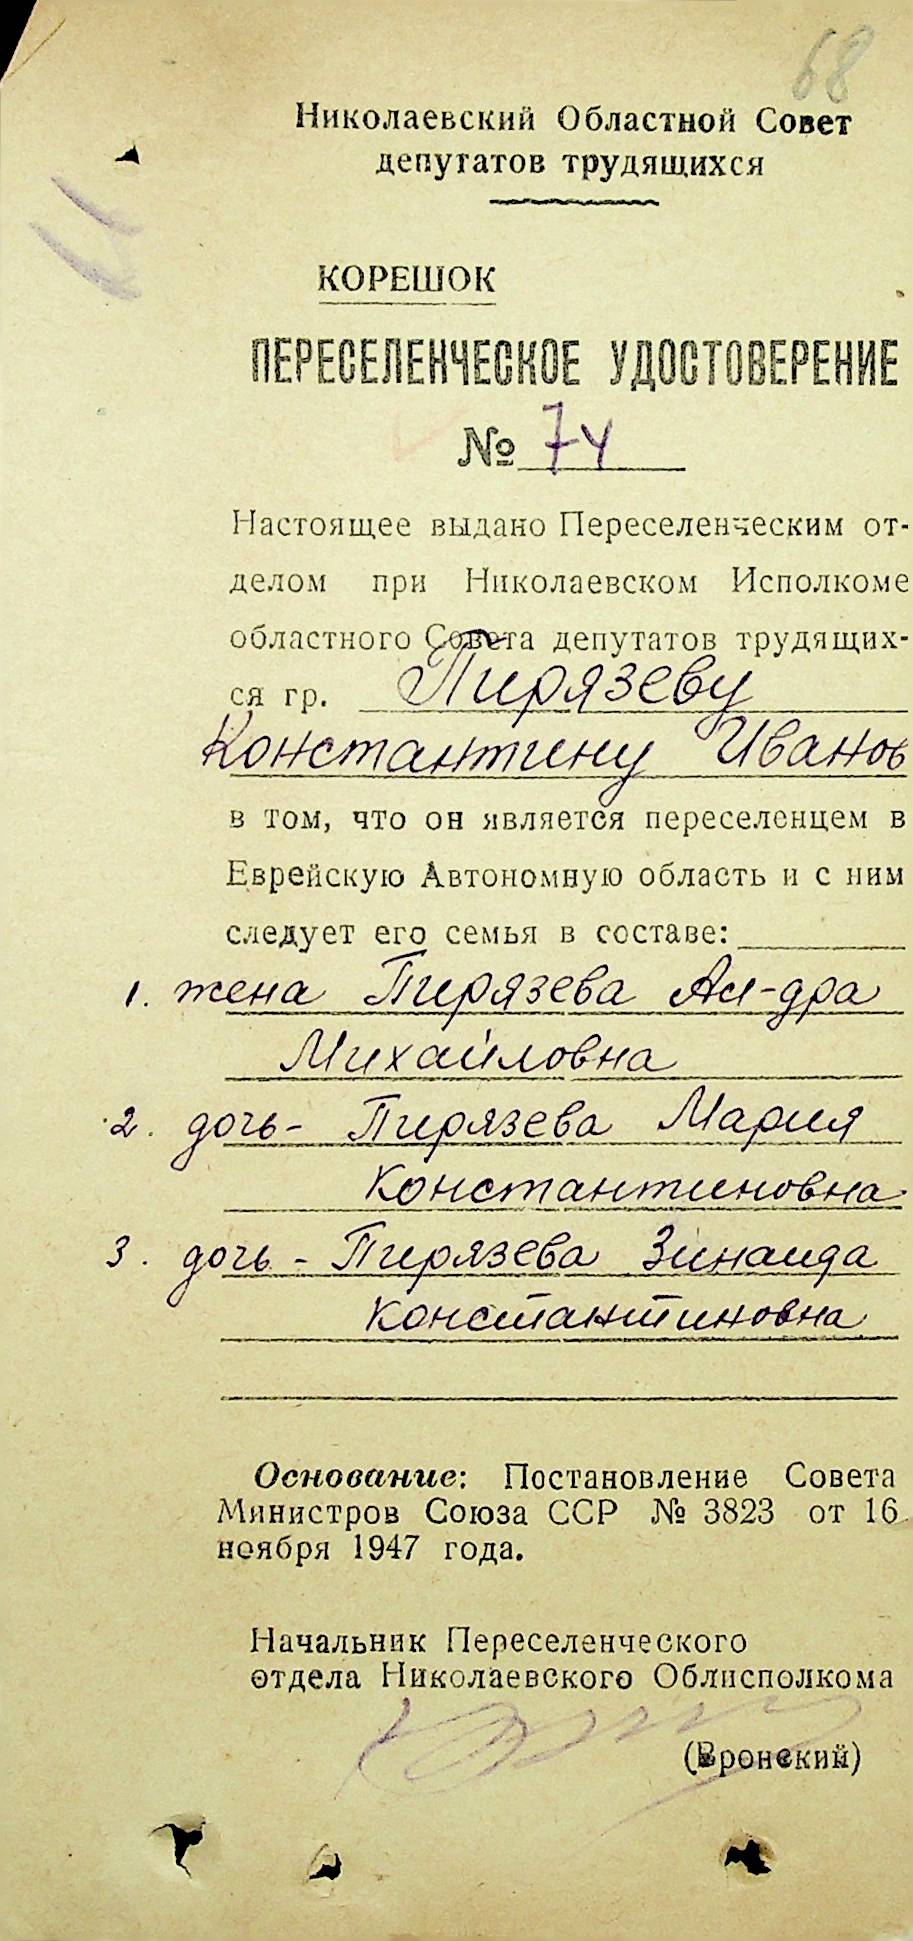 68
Николаевский Областной Совет
депутатов трудящихся
КОРЕШОК
ПЕРЕСЕЛЕНЧЕСКОЕ УДОСТОВЕРЕНИЕ
№ 74
Настоящее выдано Переселенческим от-
делом при Николаевском Исполкоме
областного Совета депутатов трудящих-
ся гр. Пирязеву
Константину Иванов
в том, что он является переселенцем в
Еврейскую Автономную область и с ним
следует его семья в составе:
1. жена Пирязева Ал-дра
Михайловна
2. дочь - Пирязева Мария
Константиновна
3. дочь - Пирязева Зинаида
Константиновна
Основание: Постановление Совета
Министров Союза ССР № 3823 от 16
ноября 1947 года.
Начальник Переселенческого
отдела Николаевского Облисполкома
(Вронский)